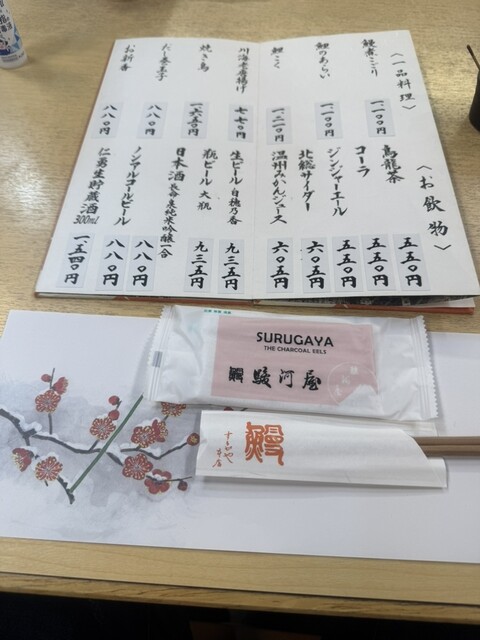 〈一品料理〉
鰻煮こごり
一、一〇〇円
鯉のあらい
一、一〇〇円
鯉こく
一、二一〇円
川海老唐揚げ
七七〇円
焼き鳥
一、六五〇円
だし巻玉子
八八〇円
お新香
八八〇円
〈お飲物〉
烏龍茶
五五〇円
コーラ
五五〇円
ジンジャーエール
五五〇円
北総サイダー
六〇五円
温州みかんジュース
六〇五円
生ビール 白穂乃香
九三五円
瓶ビール 大瓶
九三五円
日本酒 長命泉純米吟醸一合
ノンアルコールビール
八八〇円
仁勇生貯蔵酒 300ml
一、五四〇円
SURUGAYA
THE CHARCOAL EELS
駿河屋
鰻
するがや
本店